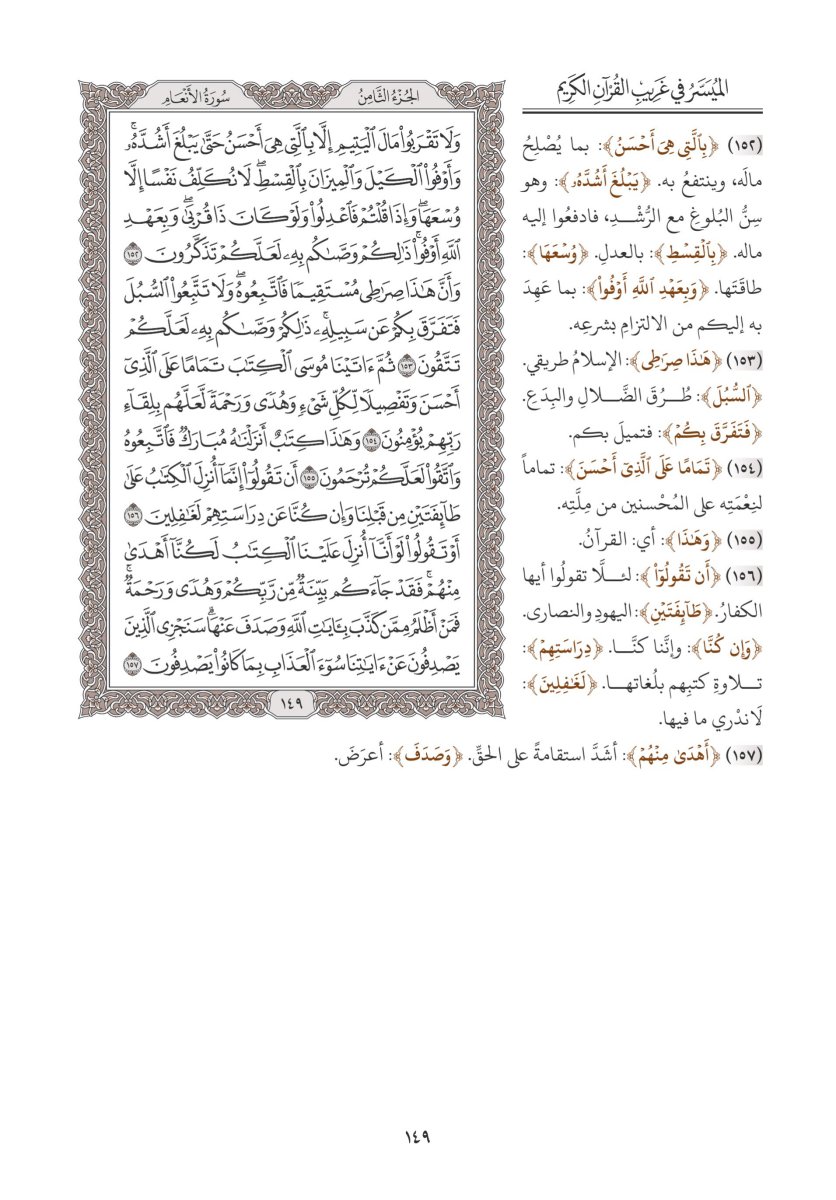 الميسر في غريب القرآن الكريم
(١٥٢) ﴿بِٱلَّتِي هِيَ أَحۡسَنُ﴾: بما يُصْلِحُ
مالَه، وينتفعُ به. ﴿يَبۡلُغَ أَشُدَّهُۥ﴾: وهو
سِنُّ البُلوغِ مع الرُّشْـــدِ، فادفعُوا إليه
ماله. ﴿بِٱلۡقِسۡطِ﴾: بالعدلِ. ﴿وُسۡعَهَا﴾:
طاقَتَها. ﴿وَبِعَهۡدِ ٱللَّهِ أَوۡفُواْ﴾: بما عَهِدَ
به إليكم من الالتزامِ بشرعِه.
(١٥٣) ﴿هَٰذَا صِرَٰطِي﴾: الإسلامُ طريقي.
﴿ٱلسُّبُلَ﴾: طُــرُقَ الضَّـــلالِ والبِدَعِ.
﴿فَتَفَرَّقَ بِكُمۡ﴾: فتميلَ بكم.
(١٥٤) ﴿تَمَامًا عَلَى ٱلَّذِيٓ أَحۡسَنَ﴾: تماماً
لنِعْمَتِه على المُحْسنين من مِلَّتِه.
(١٥٥) ﴿وَهَٰذَا﴾: أي: القرآنُ.
(١٥٦) ﴿أَن تَقُولُوٓاْ﴾: لئـــلَّا تقولُوا أيها
الكفارُ. ﴿طَآئِفَتَيۡنِ﴾: اليهودِ والنصارى.
﴿وَإِن كُنَّا﴾: وإنَّنا كنَّـــا. ﴿دِرَاسَتِهِمۡ﴾:
تـــلاوةِ كتبِهم بلُغاتهـــا. ﴿لَغَٰفِلِينَ﴾:
لَانَدْري ما فيها.
(١٥٧) ﴿أَهۡدَىٰ مِنۡهُمۡ﴾: أشَدَّ استقامةً على الحقِّ. ﴿وَصَدَفَ﴾: أعرَضَ.
الجُزْءُ الثَّامِنُ
سُورَةُ الأَنْعَامِ
وَلَا تَقۡرَبُواْ مَالَ ٱلۡيَتِيمِ إِلَّا بِٱلَّتِي هِيَ أَحۡسَنُ حَتَّىٰ يَبۡلُغَ أَشُدَّهُۥۚ
وَأَوۡفُواْ ٱلۡكَيۡلَ وَٱلۡمِيزَانَ بِٱلۡقِسۡطِۖ لَا نُكَلِّفُ نَفۡسًا إِلَّا
وُسۡعَهَاۖ وَإِذَا قُلۡتُمۡ فَٱعۡدِلُواْ وَلَوۡ كَانَ ذَا قُرۡبَىٰۖ وَبِعَهۡدِ
ٱللَّهِ أَوۡفُواْۚ ذَٰلِكُمۡ وَصَّىٰكُم بِهِۦ لَعَلَّكُمۡ تَذَكَّرُونَ ١٥٢
وَأَنَّ هَٰذَا صِرَٰطِي مُسۡتَقِيمٗا فَٱتَّبِعُوهُۖ وَلَا تَتَّبِعُواْ ٱلسُّبُلَ
فَتَفَرَّقَ بِكُمۡ عَن سَبِيلِهِۦۚ ذَٰلِكُمۡ وَصَّىٰكُم بِهِۦ لَعَلَّكُمۡ
تَتَّقُونَ ١٥٣ ثُمَّ ءَاتَيۡنَا مُوسَى ٱلۡكِتَٰبَ تَمَامًا عَلَى ٱلَّذِيٓ
أَحۡسَنَ وَتَفۡصِيلٗا لِّكُلِّ شَيۡءٖ وَهُدٗى وَرَحۡمَةٗ لَّعَلَّهُم بِلِقَآءِ
رَبِّهِمۡ يُؤۡمِنُونَ ١٥٤ وَهَٰذَا كِتَٰبٌ أَنزَلۡنَٰهُ مُبَارَكٞ فَٱتَّبِعُوهُ
وَٱتَّقُواْ لَعَلَّكُمۡ تُرۡحَمُونَ ١٥٥ أَن تَقُولُوٓاْ إِنَّمَآ أُنزِلَ ٱلۡكِتَٰبُ عَلَىٰ
طَآئِفَتَيۡنِ مِن قَبۡلِنَا وَإِن كُنَّا عَن دِرَاسَتِهِمۡ لَغَٰفِلِينَ ١٥٦
أَوۡ تَقُولُواْ لَوۡ أَنَّآ أُنزِلَ عَلَيۡنَا ٱلۡكِتَٰبُ لَكُنَّآ أَهۡدَىٰ
مِنۡهُمۡۚ فَقَدۡ جَآءَكُم بَيِّنَةٞ مِّن رَّبِّكُمۡ وَهُدٗى وَرَحۡمَةٞۚ
فَمَنۡ أَظۡلَمُ مِمَّن كَذَّبَ بِـَٔايَٰتِ ٱللَّهِ وَصَدَفَ عَنۡهَاۗ سَنَجۡزِي ٱلَّذِينَ
يَصۡدِفُونَ عَنۡ ءَايَٰتِنَا سُوٓءَ ٱلۡعَذَابِ بِمَا كَانُواْ يَصۡدِفُونَ ١٥٧
١٤٩
١٤٩